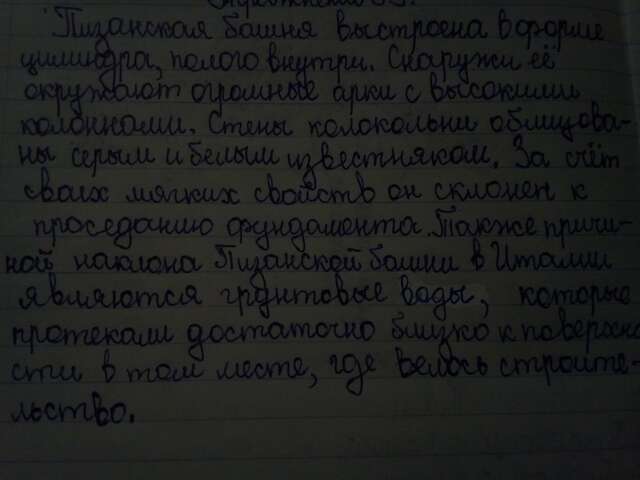 Упражнение 
Пизанская башня выстроена в форме
цилиндра, полого внутри. Снаружи её
окружают огромные арки с высокими
колоннами. Стены колокольни облицова-
ны серым и белым известняком. За счёт
своих мягких свойств он склонен к
проседанию фундамента. Также причи-
ной наклона Пизанской башни в Италии
являются грунтовые воды, которые
протекали достаточно близко к поверхно
сти в том месте, где велось строите-
льство.